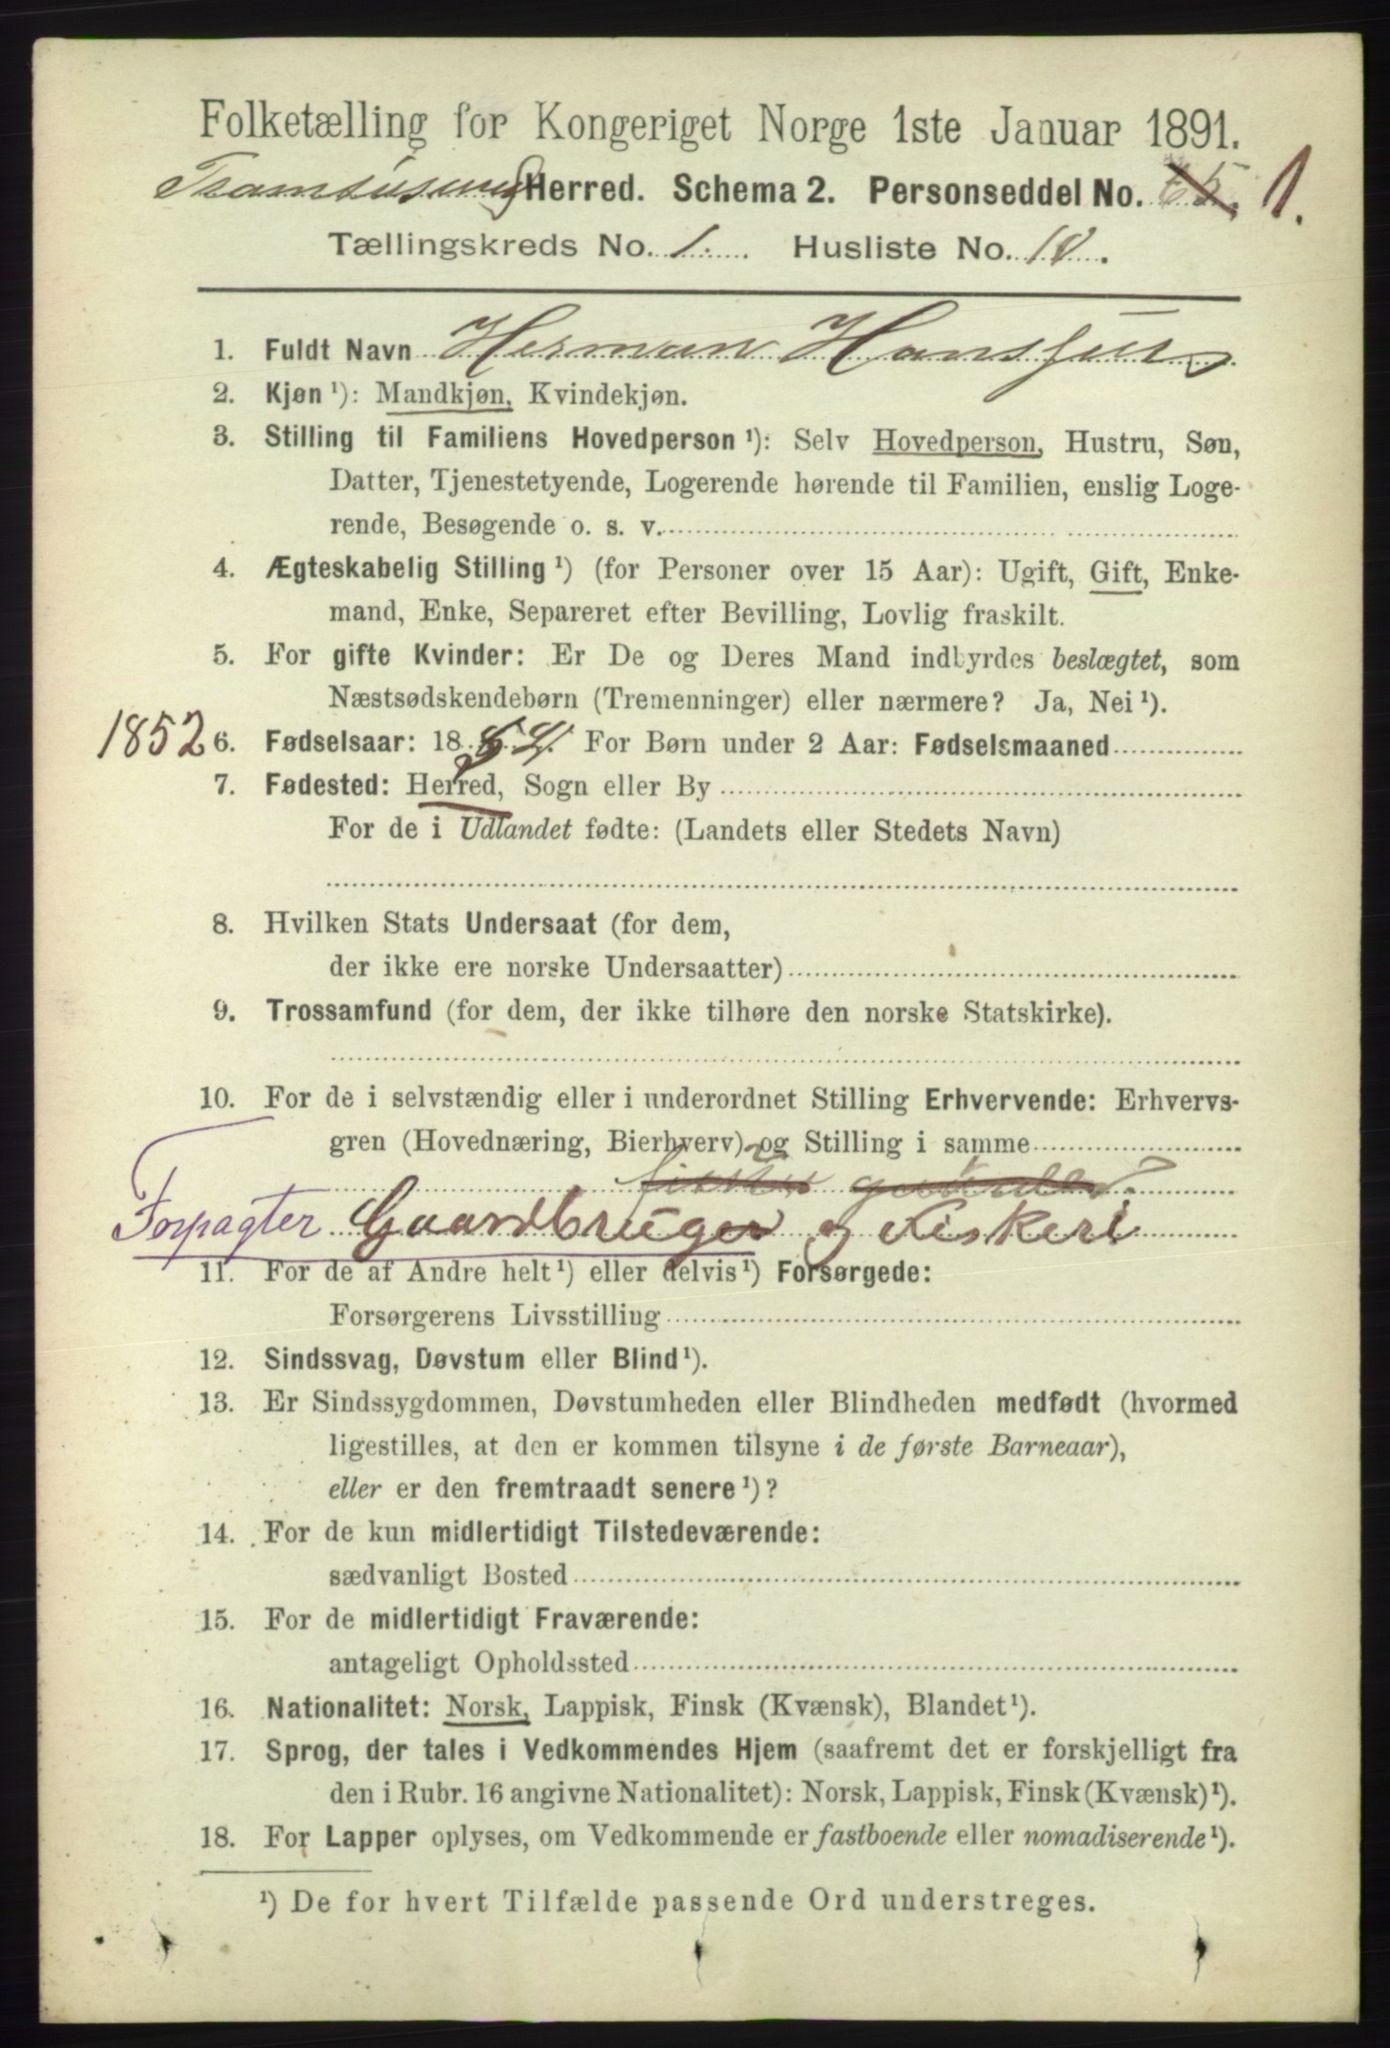 Folketælling for Kongeriget Norge 1ste Januar 1891.
Tromsøsund Herred. Schema 2. Personseddel No. 65. 1.
Tællingskreds No. 1. Husliste No. 10.
1. Fuldt Navn Herman Hans
2. Kjøn ¹): Mandkjøn, Kvindekjøn.
3. Stilling til Familiens Hovedperson ¹): Selv Hovedperson, Hustru, Søn,
Datter, Tjenestetyende, Logerende hørende til Familien, enslig Loge-
rende, Besøgende o. s. v.
4. Ægteskabelig Stilling ¹) (for Personer over 15 Aar): Ugift, Gift, Enke-
mand, Enke, Separeret efter Bevilling, Lovlig fraskilt.
5. For gifte Kvinder: Er De og Deres Mand indbyrdes beslægtet, som
Næstsødskendebørn (Tremenninger) eller nærmere? Ja, Nei ¹).
1852 6. Fødselsaar: 18 For Børn under 2 Aar: Fødselsmaaned
7. Fødested: Herred, Sogn eller By
For de i Udlandet fødte: (Landets eller Stedets Navn)
8. Hvilken Stats Undersaat (for dem,
der ikke ere norske Undersaatter)
9. Trossamfund (for dem, der ikke tilhøre den norske Statskirke).
10. For de i selvstændig eller i underordnet Stilling Erhvervende: Erhvervs-
gren (Hovednæring, Bierhverv) og Stilling i samme
Forpagter Gaardbruger og Fiskeri
11. For de af Andre helt ¹) eller delvis ¹) Forsørgede:
Forsørgerens Livsstilling
12. Sindssvag, Døvstum eller Blind ¹).
13. Er Sindssygdommen, Døvstumheden eller Blindheden medfødt (hvormed
ligestilles, at den er kommen tilsyne i de første Barneaar),
eller er den fremtraadt senere ¹)?
14. For de kun midlertidigt Tilstedeværende:
sædvanligt Bosted
15. For de midlertidigt Fraværende:
antageligt Opholdssted
16. Nationalitet: Norsk, Lappisk, Finsk (Kvænsk), Blandet ¹).
17. Sprog, der tales i Vedkommendes Hjem (saafremt det er forskjelligt fra
den i Rubr. 16 angivne Nationalitet): Norsk, Lappisk, Finsk (Kvænsk) ¹).
18. For Lapper oplyses, om Vedkommende er fastboende eller nomadiserende ¹).
¹) De for hvert Tilfælde passende Ord understreges.